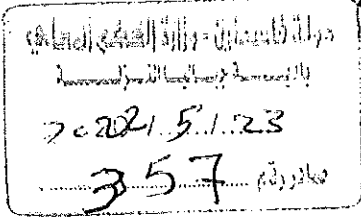 دولة فلسطين - وزارة الحكم المحلي
2021/5/23
صادر رقم 357